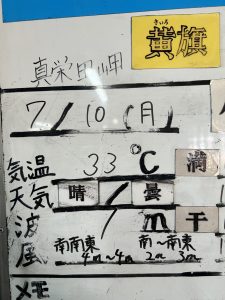 きいろ
黄旗
真栄田岬
7/10(月)
気温 33℃ 満
天気 晴/曇
波 1m 干
風 南南東 南～南東
4m～4m 2m 3m
メモ